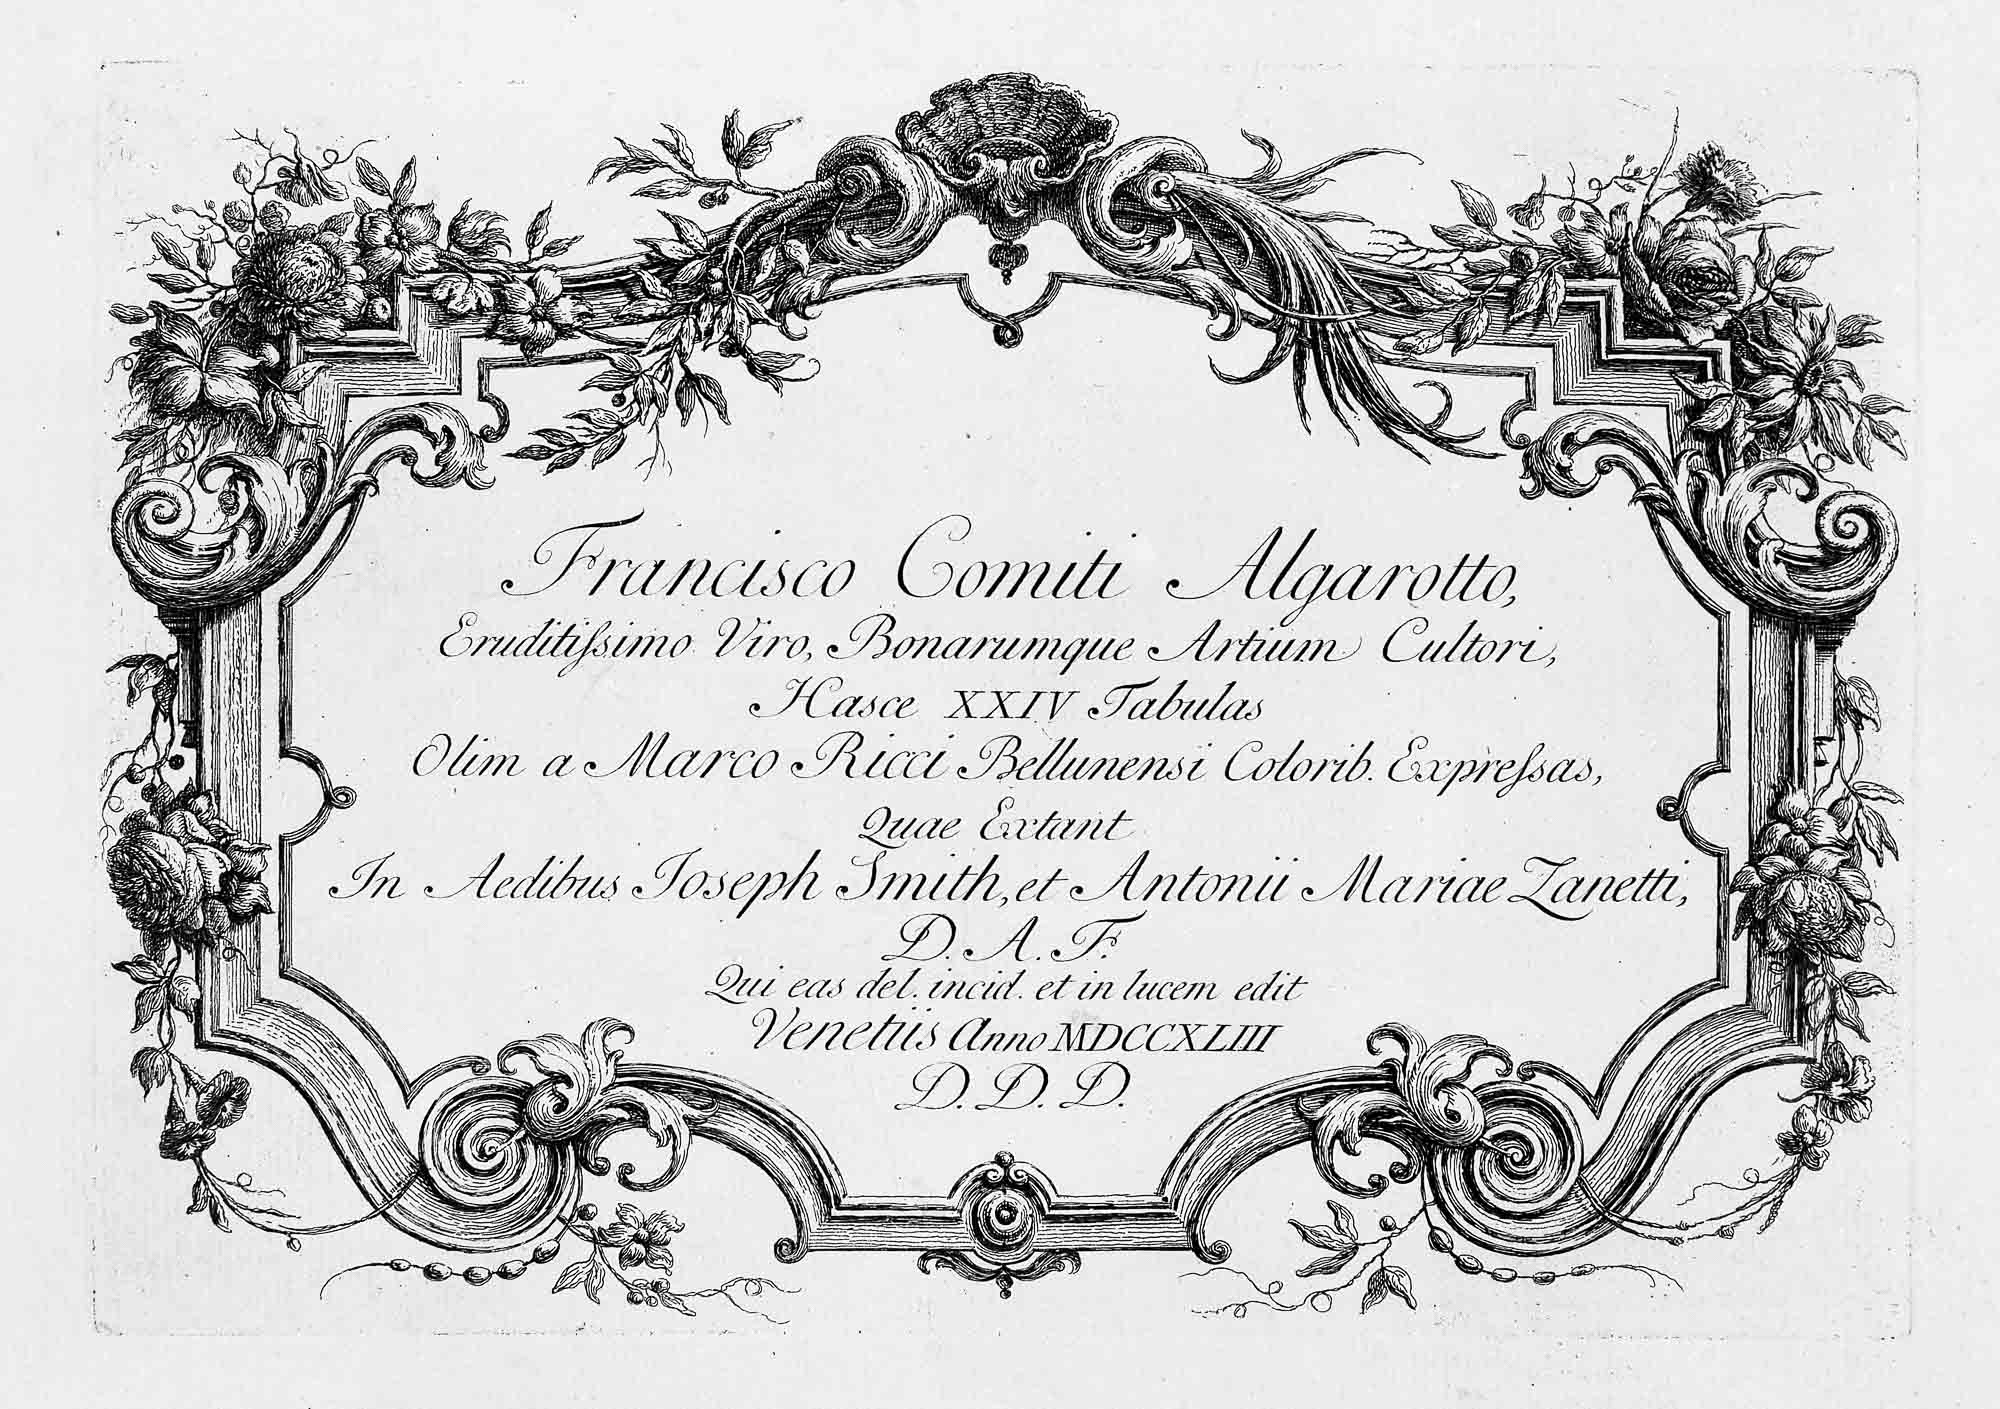 Francisco Comiti Algarotto,
Eruditiſsimo Viro, Bonarumque Artium Cultori,
Hasce XXIV Tabulas
Olim a Marco Ricci Bellunensi Colorib. Expreſsas,
Quae Extant
In Aedibus Joseph Smith, et Antonii Mariae Zanetti,
D. A. F.
Qui eas del. incid. et in lucem edit
Venetiis Anno MDCCXLIII
D. D. D.